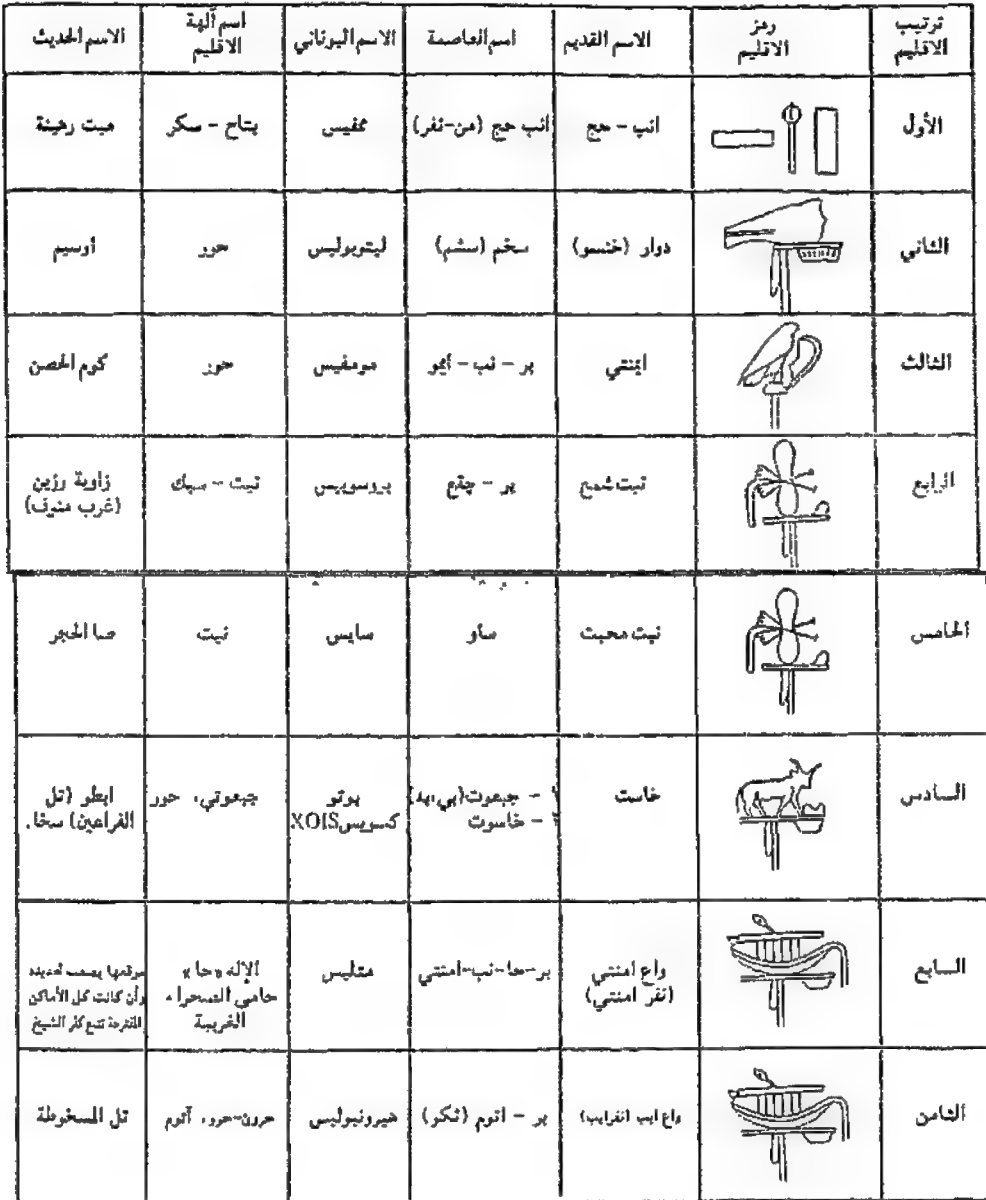 ترتيب الاقليم | رمز الاقليم | الاسم القديم | اسم العاصمة | الاسم اليوناني | اسم آلهة الاقليم | الاسم الحديث
الأول | انب - حج | انب حج (من-نفر) | ممفيس | بتاح - سكر | ميت رهينة
الثاني | دوار (خنسو) | سخم (سشم) | ليتوبوليس | حور | أوسيم
الثالث | ايمنتي | بر - نب - ايمو | مومفيس | حور | كوم الحصن
الرابع | نيت شمع | بر - جقع | بروسوبيس | نيت - سبك | زاوية رزين (غرب منوف)
الخامس | نيت محيت | ساو | سايس | نيت | صا الحجر
السادس | خاست | ١ - جبعوت (بي، به) ٢ - خاسوت | بوتو كسويس XOIS | جبعوتي، حور | ابطو (تل الفراعين) سخا.
السابع | واع امنتي (نفر امنتي) | بر-حا-نب-امنتي | متليس | الإله «حا» حامي الصحراء الغربية | موقعها يصعب تحديده وأن كانت كل الأماكن المقترحة تتبع كفر الشيخ
الثامن | واع ايب (نفرايب) | بر - اتوم (ثكو) | هيرونبوليس | حرون-حور، آتوم | تل المسخوطة